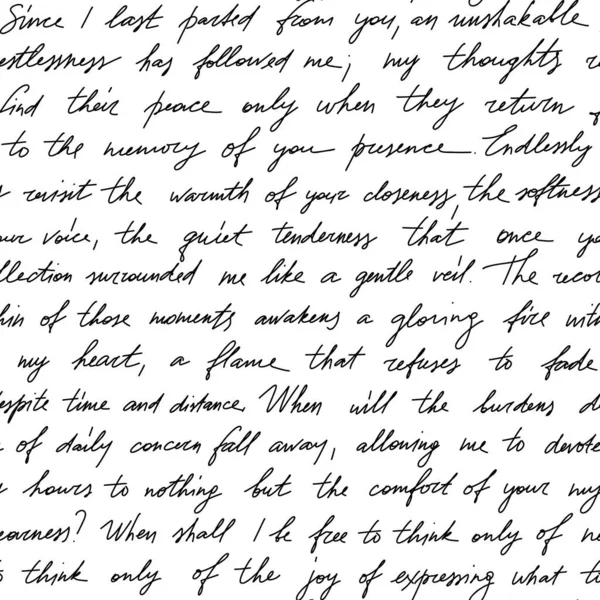 Since I last parted from you, an unshakable
estlessness has followed me; my thoughts r
find their peace only when they return
to the memory of you presence. Endlessly
revisit the warmth of your closeness, the softness
our voice, the quiet tenderness that once yo
llection surrounded me like a gentle veil. The reco
hin of those moments awakens a gloring fire with
my heart, a flame that refuses to fade
espite time and distance. When will the burdens d
of daily concern fall away, allowing me to devote
hours to nothing but the comfort of your my
earness? When shall I be free to think only of ne
to think only of the joy of expressing what t